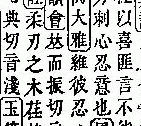 以喜匪言不
刺心忍意也○
大雅維彼忍
韻會𠀤而振切
柔刃之木荏
典切音淺玉篇